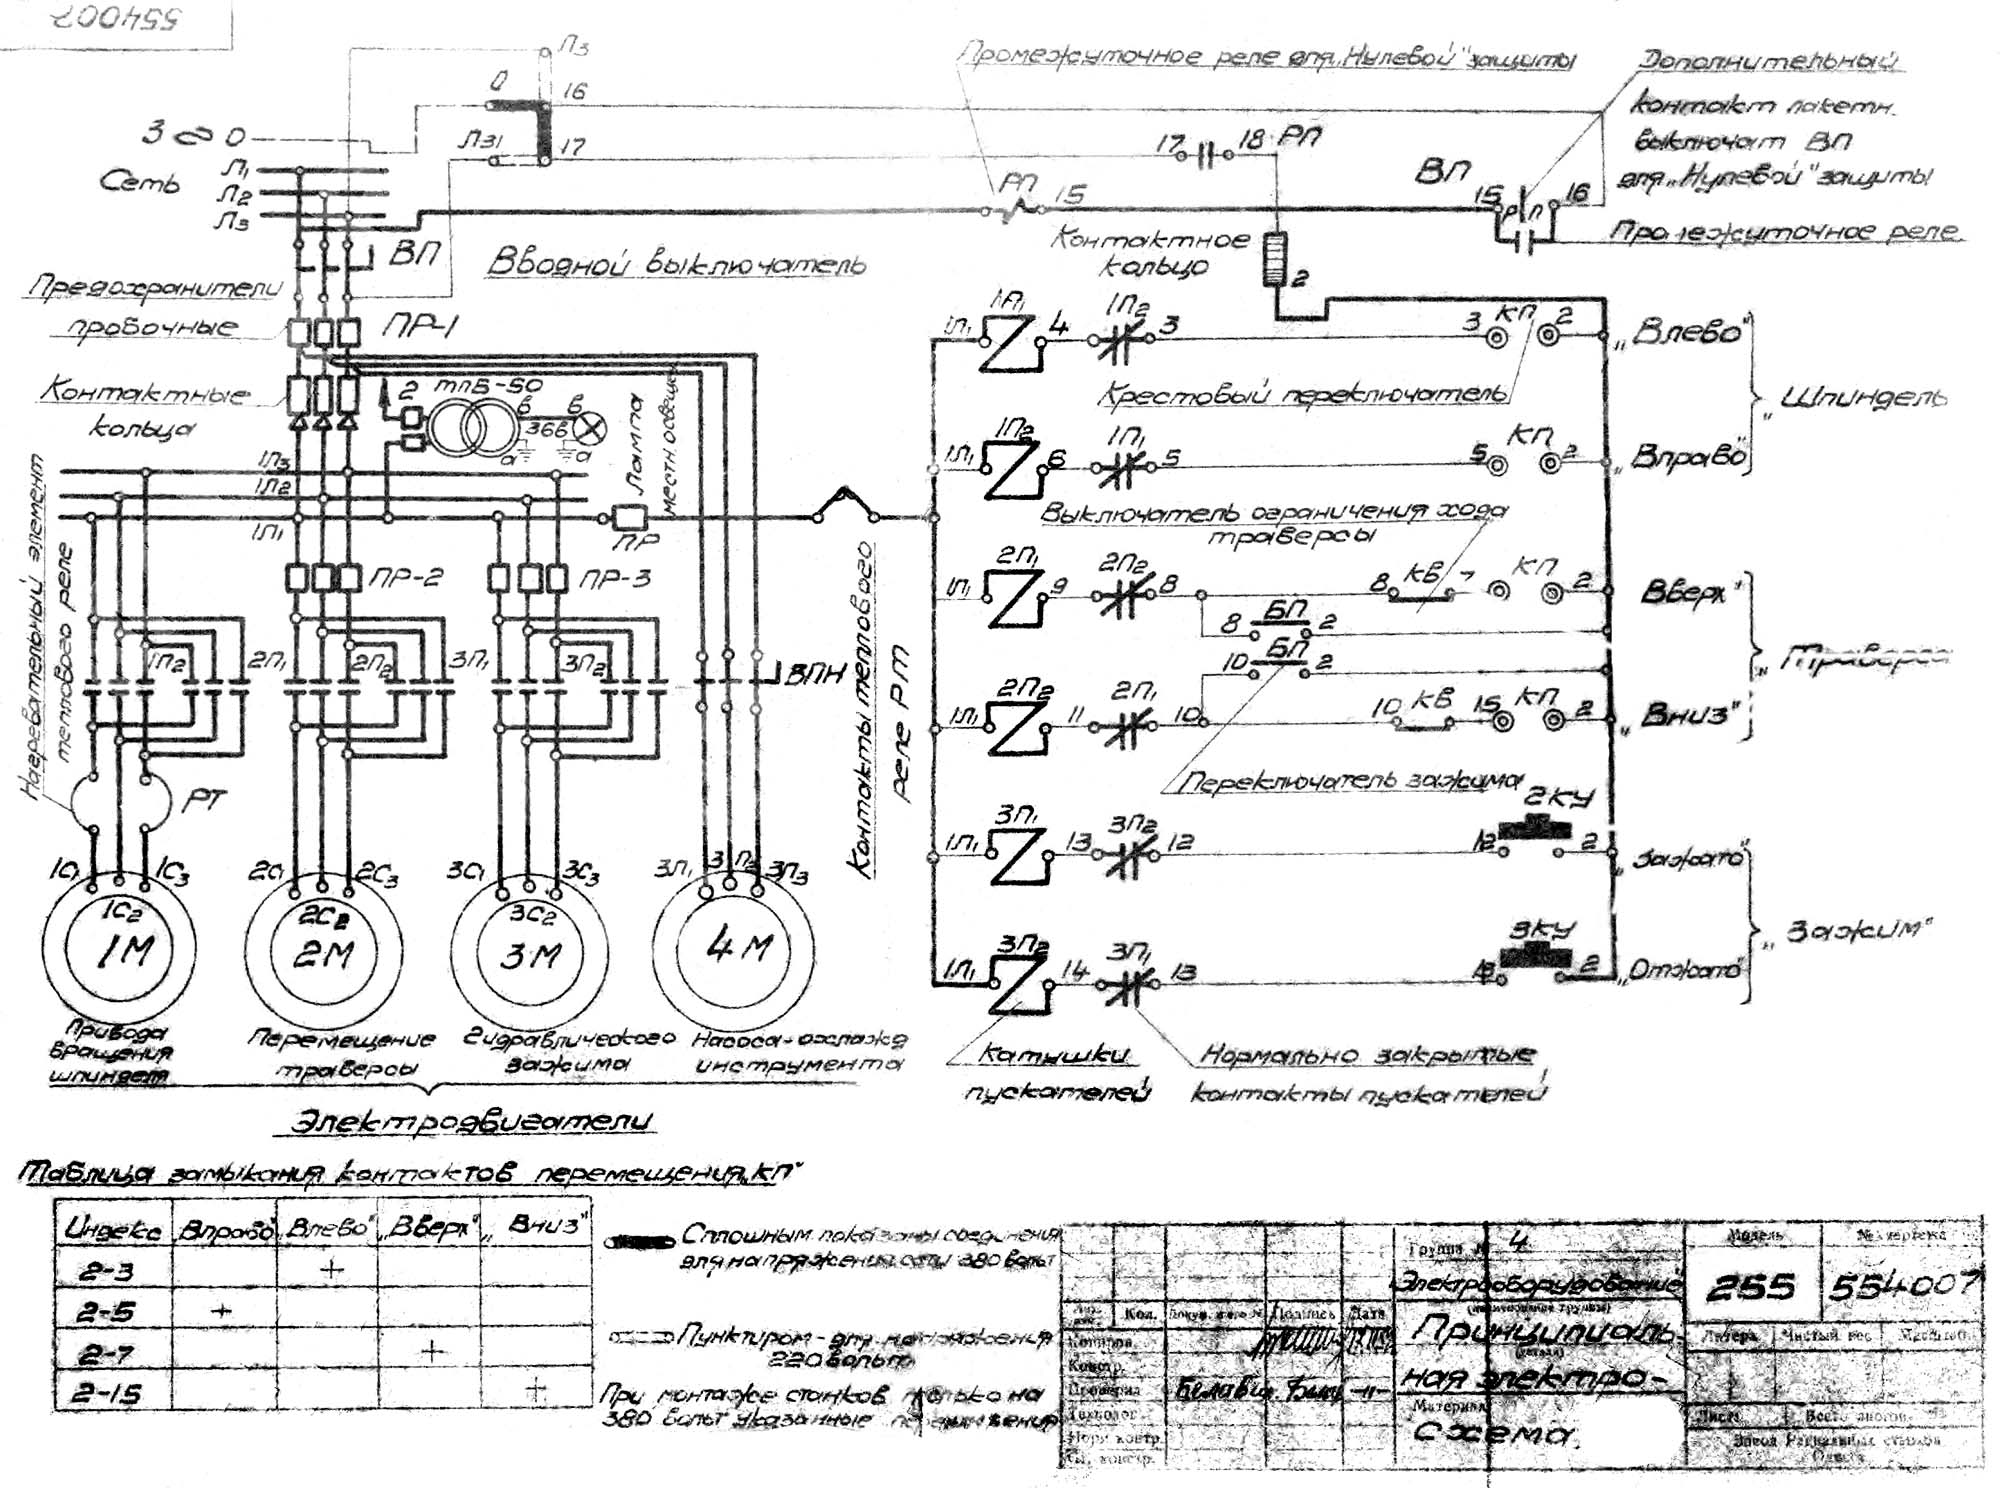 554007
Л3
Промежуточное реле для „Нулевой" защиты
Дополнительный
контакт пакетн.
выключат ВП
для „Нулевой" защиты
Промежуточное реле
0
16
3 ~ 0
Л31
17
17
18
РП
Сеть
Л1
Л2
Л3
РП
15
ВП
15
РП
16
ВП
Вводной выключатель
Контактное
кольцо
2
Предохранители
пробочные
ПР-1
Контактные
кольца
2
ТПБ-50
в
в
36в
а
а
Лампа
местн. освещен
Нагревательный элемент
теплового реле
1Л3
1Л2
1Л1
ПР
ПР-2
ПР-3
1П2
2П1
2П2
3П1
3П2
ВПН
Контакты теплового
реле РТ
РТ
1С1
1С2
1С3
2С1
2С2
2С3
3С1
3С2
3С3
3Л1
3Л3
1М
2М
3М
4М
Привода
вращения
шпинделя
Перемещение
траверсы
Гидравлического
зажима
Насоса-охлажд
инструмента
Электродвигатели
1Л1
1П1
4
1П2
3
3
КП
2
„Влево"
Крестовый переключатель
„Шпиндель
1Л1
1П2
6
1П1
5
5
КП
2
„Вправо"
Выключатель ограничения хода
траверсы
1Л1
2П1
9
2П2
8
8
КВ
7
КП
2
Вверх"
8
БП
2
10
БП
2
„Траверса
1Л1
2П2
11
2П1
10
10
КВ
15
КП
2
„Вниз"
Переключатель зажима
1Л1
3П1
13
3П2
12
2КУ
12
2
„Зажато"
„Зажим"
1Л1
3П2
14
3П1
13
3КУ
13
2
„Отжато"
Катушки
пускателей
Нормально закрытые
контакты пускателей
Таблица замыкания контактов перемещения „КП"
Индекс Вправо" Влево" „Вверх" „Вниз"
2-3 +
2-5 +
2-7 +
2-15 +
Сплошным показаны соединения
для напряжения сети 380 вольт
Пунктиром - для напряжения
220 вольт
При монтаже станков только на
380 вольт указанные
Группа № 4
Электрооборудование
(наименование группы)
Принципиаль-
(деталь)
ная электро-
Материал
схема.
Модель
№ чертежа
255
554007
Литера Чистый вес Масштаб
Лист Всего листов
Кол. Подпись Дата
Копиров.
Констр.
Проверил
Технолог
Норм контр.